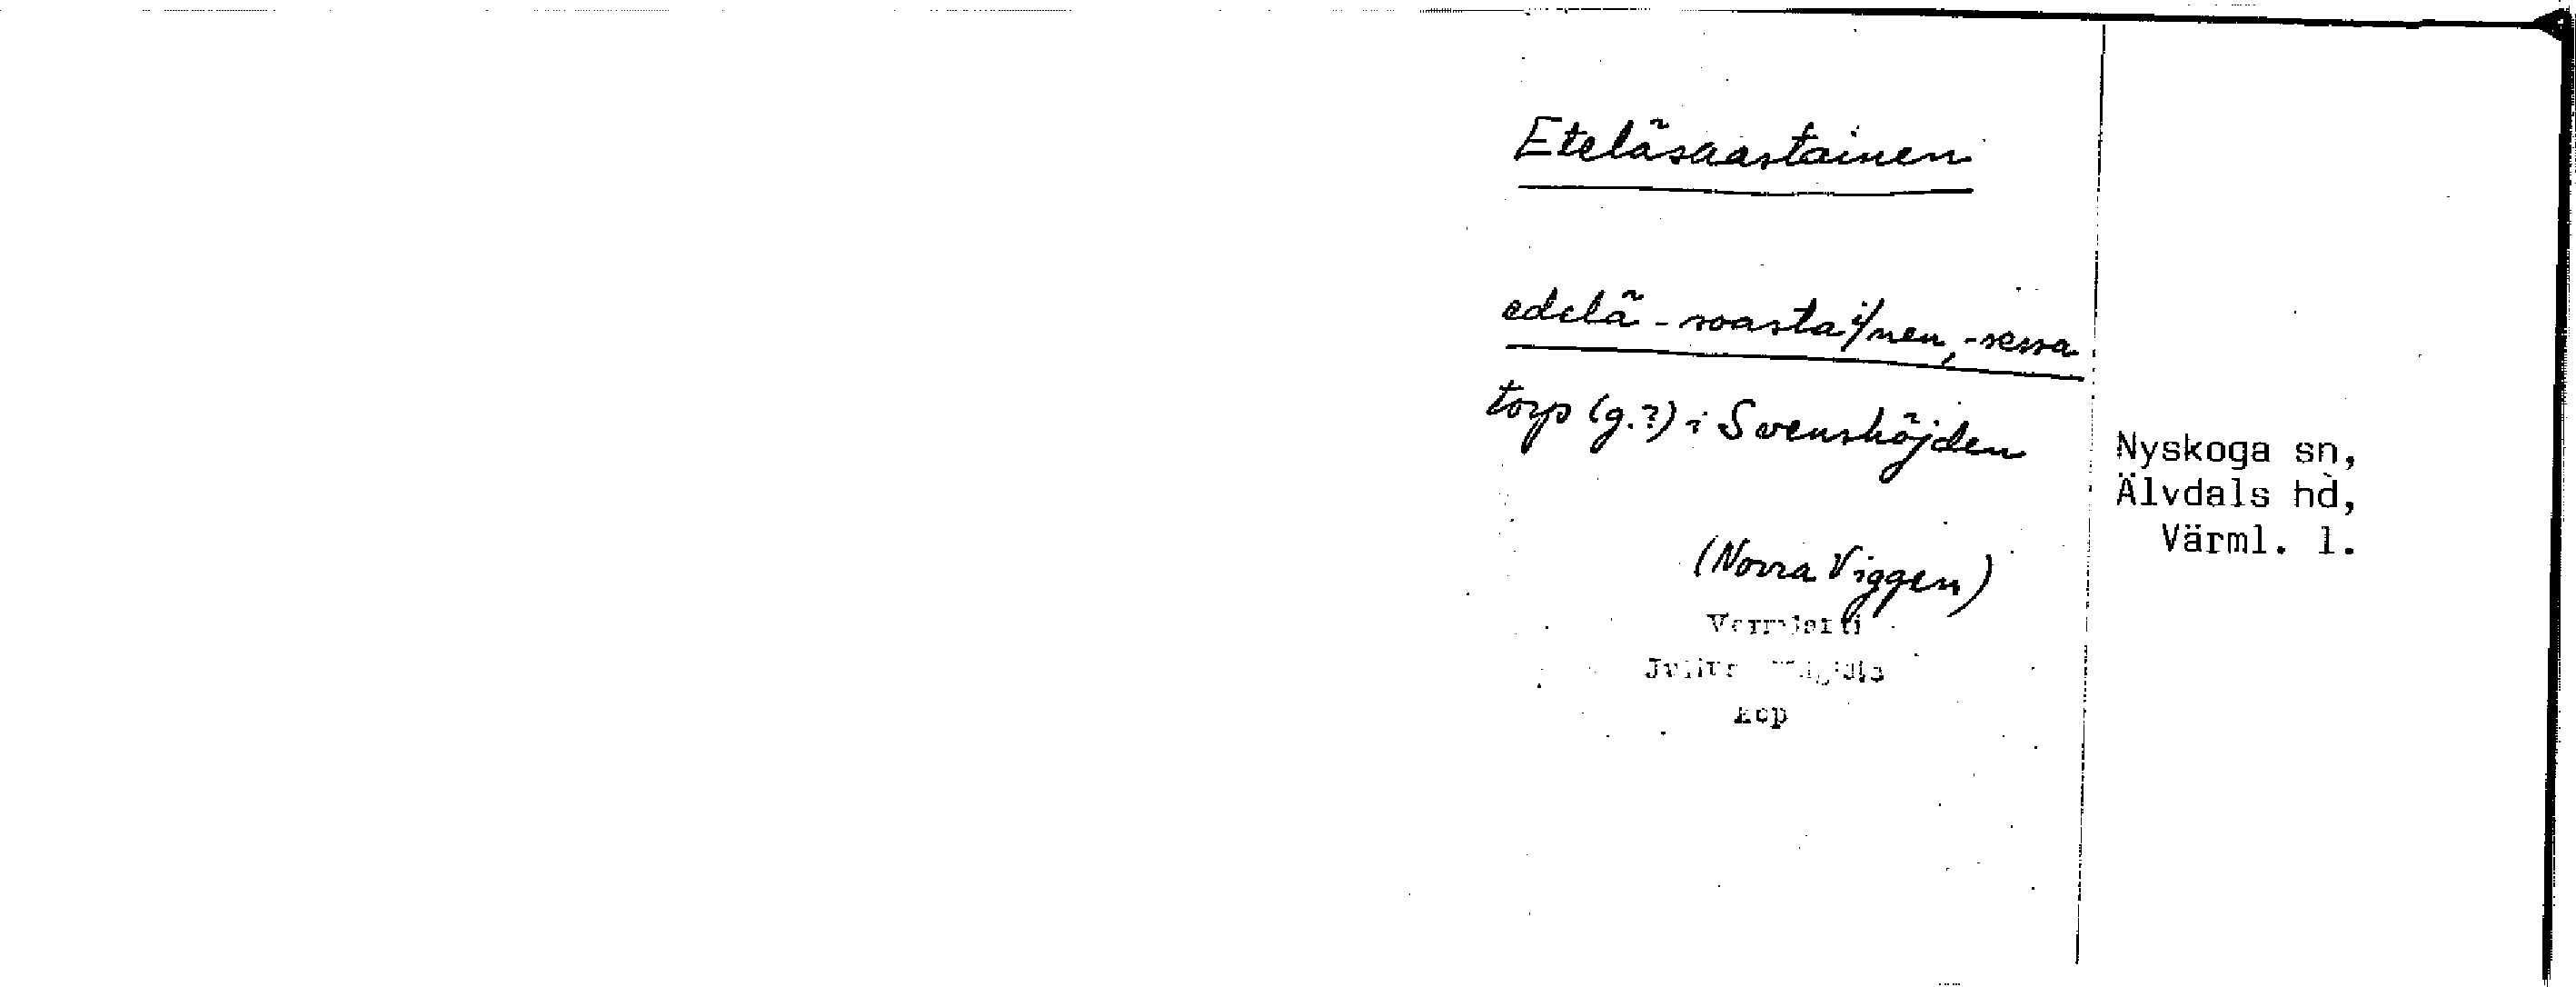 Eteläsaastainen
edelä-soastai/nen, -sessa
torp (g.?) i Svenshöjden
(Norra Viggen)
Julius
Kop
Nyskoga sn,
Älvdals hd,
Värml. l.